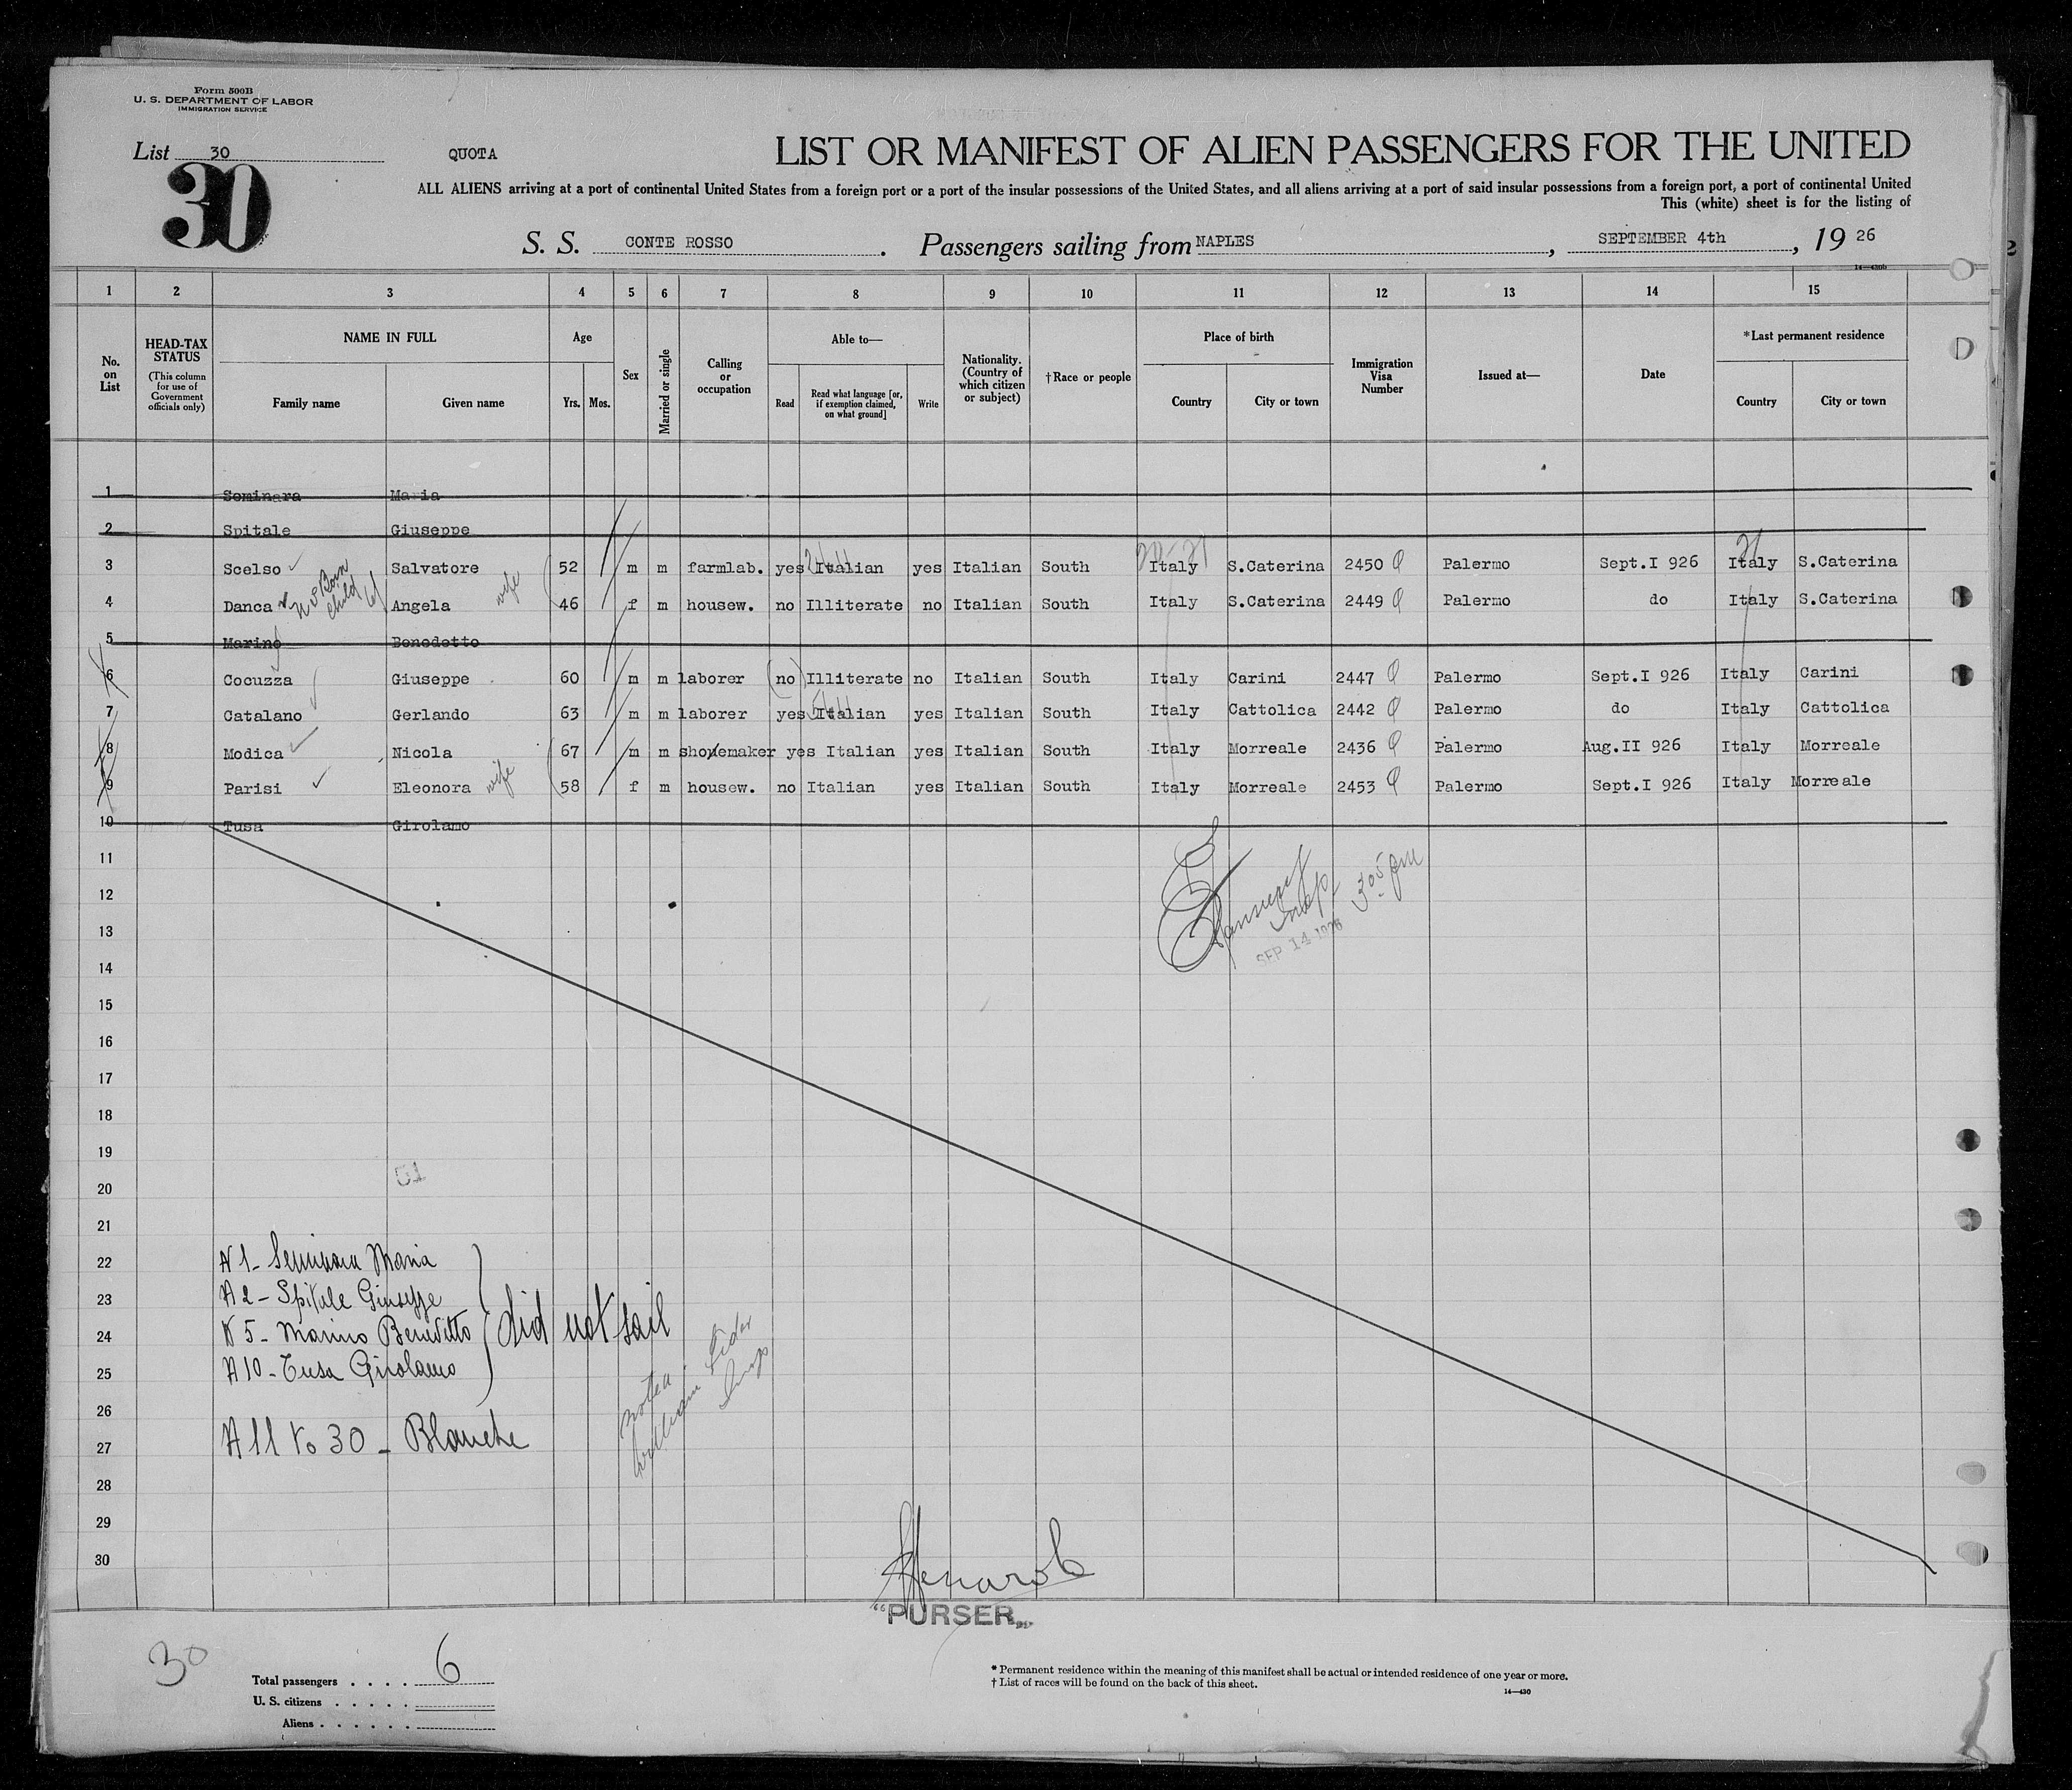 Form 500B
U. S. DEPARTMENT OF LABOR
IMMIGRATION SERVICE
List 30
QUOTA
30
LIST OR MANIFEST OF ALIEN PASSENGERS FOR THE UNITED
ALL ALIENS arriving at a port of continental United States from a foreign port or a port of the insular possessions of the United States, and all aliens arriving at a port of said insular possessions from a foreign port, a port of continental United
This (white) sheet is for the listing of
S. S. CONTE ROSSO. Passengers sailing from NAPLES, SEPTEMBER 4th, 19 26
14—430b
1 2 3 4 5 6 7 8 9 10 11 12 13 14 15
No. on List
HEAD-TAX STATUS (This column for use of Government officials only)
NAME IN FULL
Family name
Given name
Age
Yrs. Mos.
Sex
Married or single
Calling or occupation
Able to—
Read
Read what language [or, if exemption claimed, on what ground]
Write
Nationality. (Country of which citizen or subject)
†Race or people
Place of birth
Country
City or town
Immigration Visa Number
Issued at—
Date
*Last permanent residence
Country
City or town
1 Sominara Maria
2 Spitale Giuseppe
3 Scelso Salvatore 52 m m farmlab. yes Italian yes Italian South Italy S.Caterina 2450 Palermo Sept.I 926 Italy S.Caterina
4 Danca No Born child Angela wife 46 f m housew. no Illiterate no Italian South Italy S.Caterina 2449 Palermo do Italy S.Caterina
5 Marino Benedetto
6 Cocuzza Giuseppe 60 m m laborer (no) Illiterate no Italian South Italy Carini 2447 Palermo Sept.I 926 Italy Carini
7 Catalano Gerlando 63 m m laborer yes Italian yes Italian South Italy Cattolica 2442 Palermo do Italy Cattolica
8 Modica Nicola 67 m m shoxemaker yes Italian yes Italian South Italy Morreale 2436 Palermo Aug.II 926 Italy Morreale
9 Parisi Eleonora wife 58 f m housew. no Italian yes Italian South Italy Morreale 2453 Palermo Sept.I 926 Italy Morreale
10 Tusa Girolamo
11
12
Insp 3 05 pm
13
SEP 14 1926
14
15
16
17
18
19
51
20
21
22 N 1 - Seminara Maria
23 N 2 - Spitale Giuseppe
24 N 5 - Marino Beneditto
did not sail
25 N 10 - Tusa Girolamo
26
noted
William Insp
27 N 11 to 30 - Blanche
28
29
30
"PURSER"
30
Total passengers . . . . 6
U. S. citizens . . . . .
Aliens . . . . . .
* Permanent residence within the meaning of this manifest shall be actual or intended residence of one year or more.
† List of races will be found on the back of this sheet.
14—430